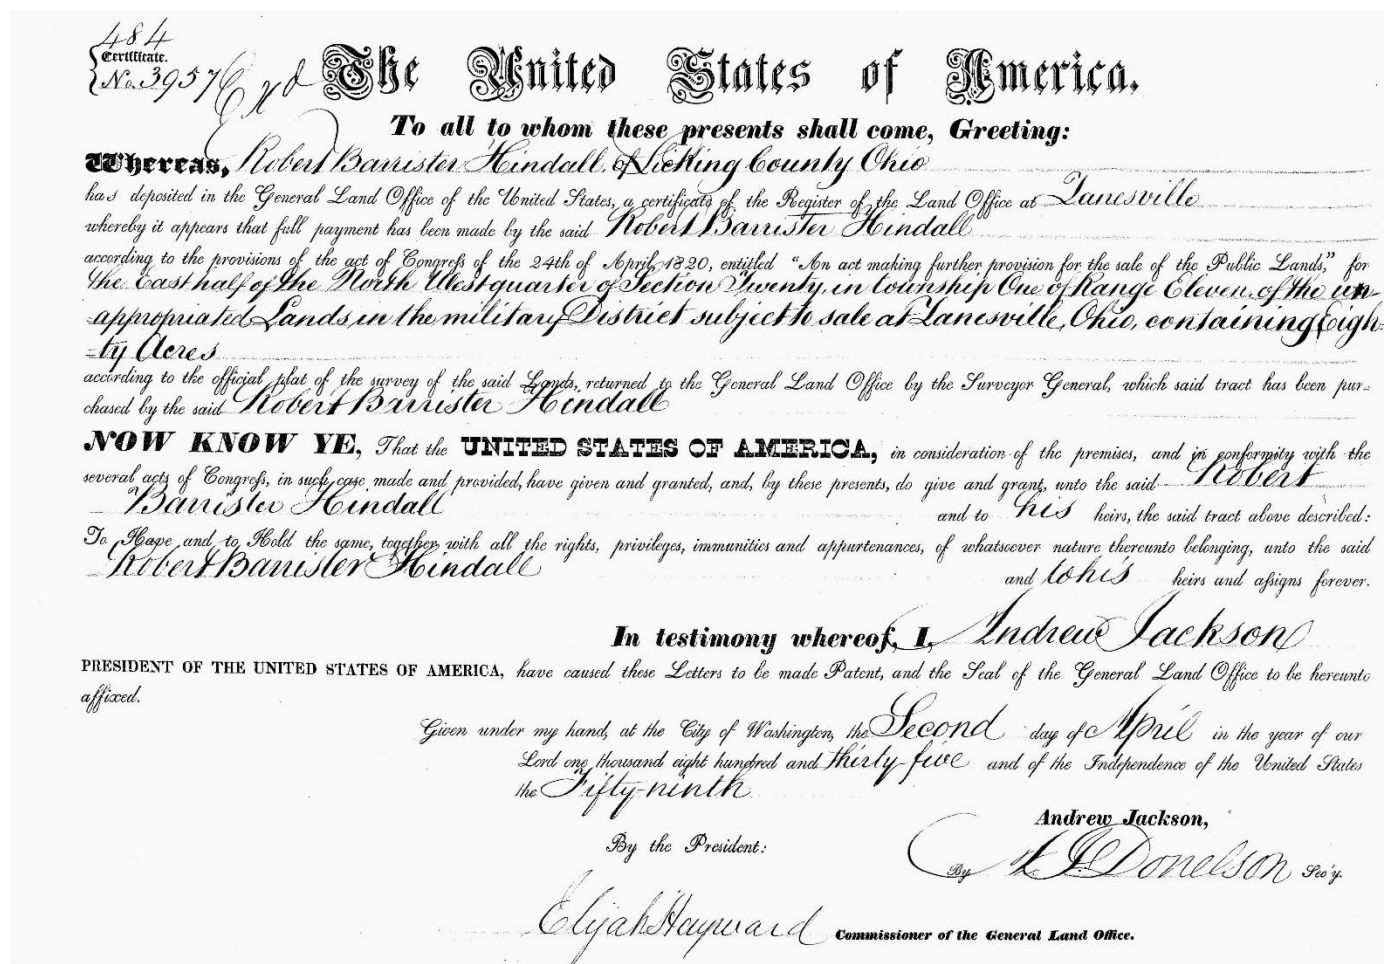 484
Certificate.
No. 3957
The United States of America.
To all to whom these presents shall come, Greeting:
Whereas, Robert Barrister Hindall, of Licking County Ohio
has deposited in the General Land Office of the United States, a certificate of the Register of the Land Office at Zanesville
whereby it appears that full payment has been made by the said Robert Barrister Hindall
according to the provisions of the act of Congress of the 24th of April, 1820, entitled "An act making further provision for the sale of the Public Lands," for
the East half of the North West quarter of Section Twenty, in township One of Range Eleven, of the un-
-appropriated Lands in the military District subject to sale at Zanesville, Ohio, containing Eigh-
-ty Acres
according to the official plat of the survey of the said Lands, returned to the General Land Office by the Surveyor General, which said tract has been pur-
chased by the said Robert Barrister Hindall
NOW KNOW YE, That the UNITED STATES OF AMERICA, in consideration of the premises, and in conformity with the
several acts of Congress, in such case made and provided, have given and granted, and, by these presents, do give and grant, unto the said Robert
Barrister Hindall and to his heirs, the said tract above described:
To Have and to Hold the same, together with all the rights, privileges, immunities and appurtenances, of whatsoever nature thereunto belonging, unto the said
Robert Barrister Hindall and to his heirs and assigns forever.
In testimony whereof, I, Andrew Jackson
PRESIDENT OF THE UNITED STATES OF AMERICA, have caused these Letters to be made Patent, and the Seal of the General Land Office to be hereunto
affixed.
Given under my hand, at the City of Washington, the Second day of April in the year of our
Lord one thousand eight hundred and thirty-five and of the Independence of the United States
the Fifty-ninth
Andrew Jackson,
By the President:
By A. J. Donelson Sec'y.
Elijah Hayward Commissioner of the General Land Office.